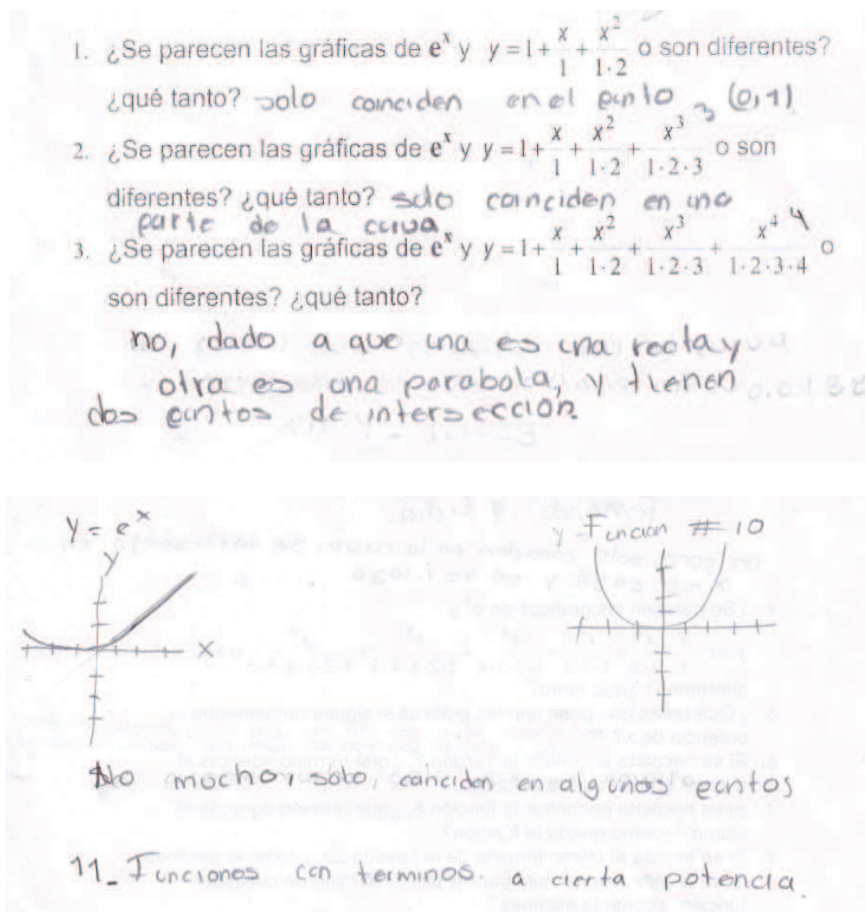 1. ¿Se parecen las gráficas de e^x y y = 1 + x/1 + x²/1·2 o son diferentes?
¿qué tanto? solo coinciden en el punto (0,1)
2. ¿Se parecen las gráficas de e^x y y = 1 + x/1 + x²/1·2 + x³/1·2·3 o son
diferentes? ¿qué tanto? solo coinciden en una
parte de la curva
3. ¿Se parecen las gráficas de e^x y y = 1 + x/1 + x²/1·2 + x³/1·2·3 + x⁴/1·2·3·4 o
son diferentes? ¿qué tanto?
no, dado a que una es una recta y
otra es una parabola, y tienen
dos puntos de intersección
y = e^x
y
x
y Funcion # 10
No mocho, solo, coinciden en algunos puntos
11_ Funciones con terminos. a cierta potencia.